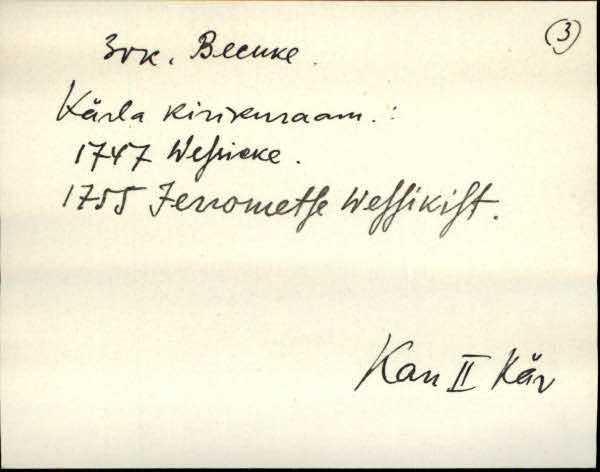 3
Зок. Весике.
Kärla kirikuraam.:
1747 Wessicke.
1755 Jerrometsse Wessikist.
Kan II Kär